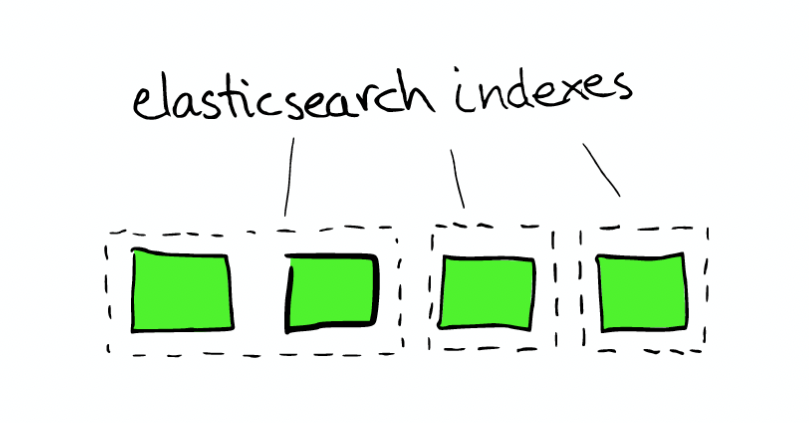 elasticsearch indexes